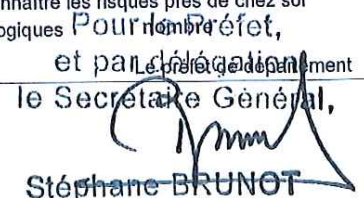 nnaître les risques près de chez soi
ogiques nombre
Pour le Préfet,
et par délégation
Le préfet de département
le Secrétaire Général,
Stéphane BRUNOT